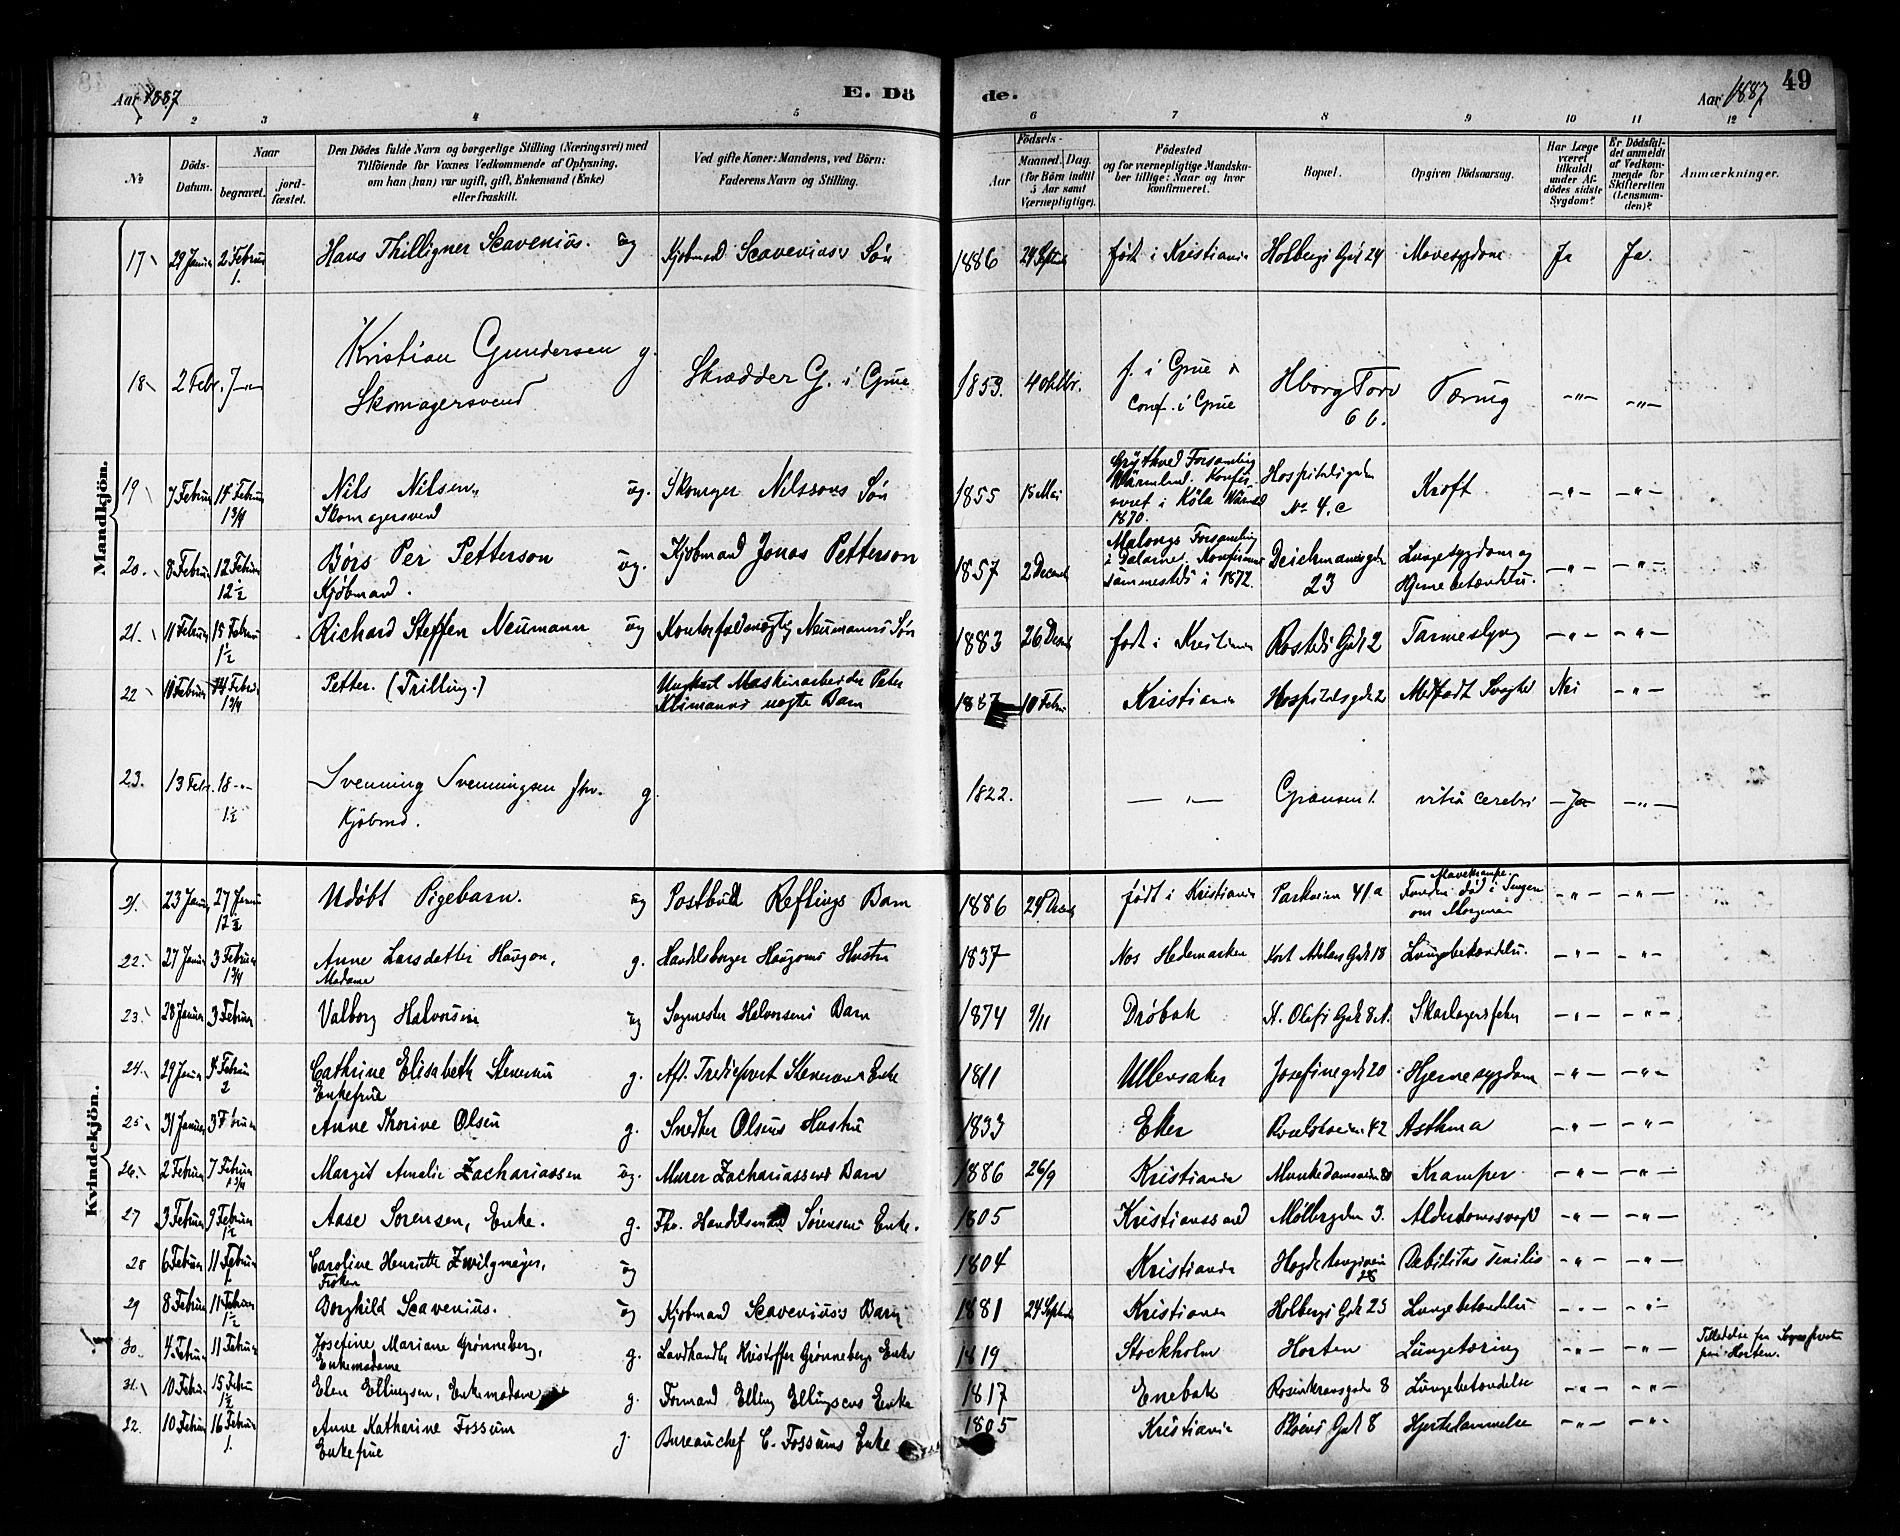 Aar 1887
E. Dö
de.
Aar 1887
49
1 2 3 4 5 6 7 8 9 10 11 12
No
Döds-Datum.
Naar
begravet.
jord-fæstet.
Den Dödes fulde Navn og borgerlige Stilling (Næringsvei) med
Tilföiende for Voxnes Vedkommende af Oplysning,
om han (hun) var ugift, gift, Enkemand (Enke)
eller fraskilt.
Ved gifte Koner: Mandens, ved Börn:
Faderens Navn og Stilling.
Födsels-
Aar
Maaned. Dag.
(for Börn indtil
5 Aar samt
Værnepligtige).
Födested
og for værnepligtige Mandska-
ber tillige: Naar og hvor
konfirmeret.
Bopæl.
Opgiven Dödsaarsag.
Har Læge
været
tilkaldt
under Af-
dödes sidste
Sygdom?
Er Dödsfal-
det anmeldt
af Vedkom-
mende for
Skifteretten
(Lensman-
den)?
Anmærkninger.
Mandkjön.
17 29 Januar 2 Februar 1. Hans Thilligner Scavenius. ug Kjøbmand Scavenius's Søn 1886 24 Septemb født i Kristiania Holbergs Gade 24 Mavesygdom Ja Ja.
18 2 Febr. 7 -"- Kristian Gundersen g. Skrædder G. i Grue 1853. 4 Oktbr. f. i Grue Hborg Torv Tæring -"- -"-
Skomagersvend conf. i Grue 6 b.
19 7 Februar 14 Februar 1 3/4 Nils Nilsen ug. Skomager Nilssons Søn 1855 15 Mai Forsamling Wärmland. Konfir-
Skomagersvend i Köla 1870. Hospitalsgaden No 4. c Kroft -"- -"-
20. 8 Februar 12 Februar 12 1/2 Børs Per Petterson ug. Kjøbmand Jonas Petterson 1857 2 Decemb Malungs Forsamling
Kjøbmand. i Dalarne. Konfirmeret sammesteds i 1872. Deichmansgade 23 Lungesygdom og Hjernebetændelse. -"- -"-
21. 11 Februar 15 Februar 1 1/2 Richard Steffen Neumann ug Kontorfuldmægtig Neumanns Søn 1883 26 Decemb født i Kristiania Rosteds Gade 2 Tarmeslyng -"- -"-
22 10 Februar 14 Februar 1 3/4 Petter. (Trilling.) Ungkarl Maskinarbeider Peter
Klimanns uægte Barn 1887 10 Februar Kristiania Hospitalsgade 2 Medfødt Svaghed Nei -"-
23. 13 Febr. 18 -"- 1 1/2 Svenning Svenningsen fhv. g. 1822. -"- Grænsen 1. vitia cerebri -Ja- -"-
Kjøbmd.
Kvindekjön.
21. 23 Januar 27 Januar 12 1/2 Udøbt Pigebarn. ug Postbud Reflings Barn 1886 24 Decemb født i Kristiania Parkveien 41 a Mavekrampe
Funden død i Sengen om Morgenen -"- -"-
22. 27 Januar 3 Februar 1 3/4 Anne Larsdatter Haugom, g. Handelsborger Haugoms Hustru 1837 Nes Hedemarken Kort Adelers Gade 18 Lungebetændelse. -"- -"-
Madame
23. 28 Januar 3 Februar Valborg Halvorsen ug Sagmester Halvorsens Barn 1874 9/11 Drøbak St. Olafs Gade 8 A. Skarlagensfeber -"- -"-
24. 29 Januar 4 Februar 2 Cathrine Elisabeth Stenersen g. Afd. Stenersens Enke 1811 Ullensaker Josefinegade 20 Hjernesygdom -"- -"-
Enkefrue
25. 31 Januar 3 Februar Anne Thorine Olsen g. Snedker Olsens Hustru 1833 Eker 42 Asthma -"- -"-
26. 2 Februar 7 Februar 1 3/4 Margit Amalie Zachariassen ug. Murer Zachariassens Barn 1886 26/9 Kristiania Munkedamsveien Kramper -"- -"-
27 3 Februar 9 Februar 1 1/2 Aase Sørensen, Enke. g. Fhv. Handelsmand Sørensens Enke. 1805 Kristianssand Møllergaden 3. Alderdomssvagh -"- -"-
28 6 Februar 11 Februar 1 Caroline Henriette Zwilgmeyer, ug 1804 Kristiania Hegdehaugsveien 28 Debilitas senilis -"- -"-
Frøken
29 8 Februar 11 Februar 1 1/2 Borghild Scavenius. ug Kjøbmand Scavenius's Barn 1881 24 Septemb Kristiania Holbergs Gade 25 Lungebetændelse -"- -"-
30. 4 Februar 11 Februar Josefine Mariane Grønneberg, g. Landhandler Kristoffer Grønnebergs Enke 1819 Stockholm Horten Lungetæring -"- -"- Tilladelse fra Sognepresten
Enkemadame paa Horten.
31. 10 Februar 15 Februar 1 1/2 Elen Ellingsen, Enkemadame g. Formand Elling Ellingsens Enke 1817 Enebak Rosenkransgade 8 Lungebetændelse -"- -"-
22. 10 Februar 16 Februar 1. Anne Katharine Fossum g. Bureauchef C. Fossums Enke 1805 Kristiania Pløens Gade 8 Hjertelammelse -"- -"-
Enkefrue